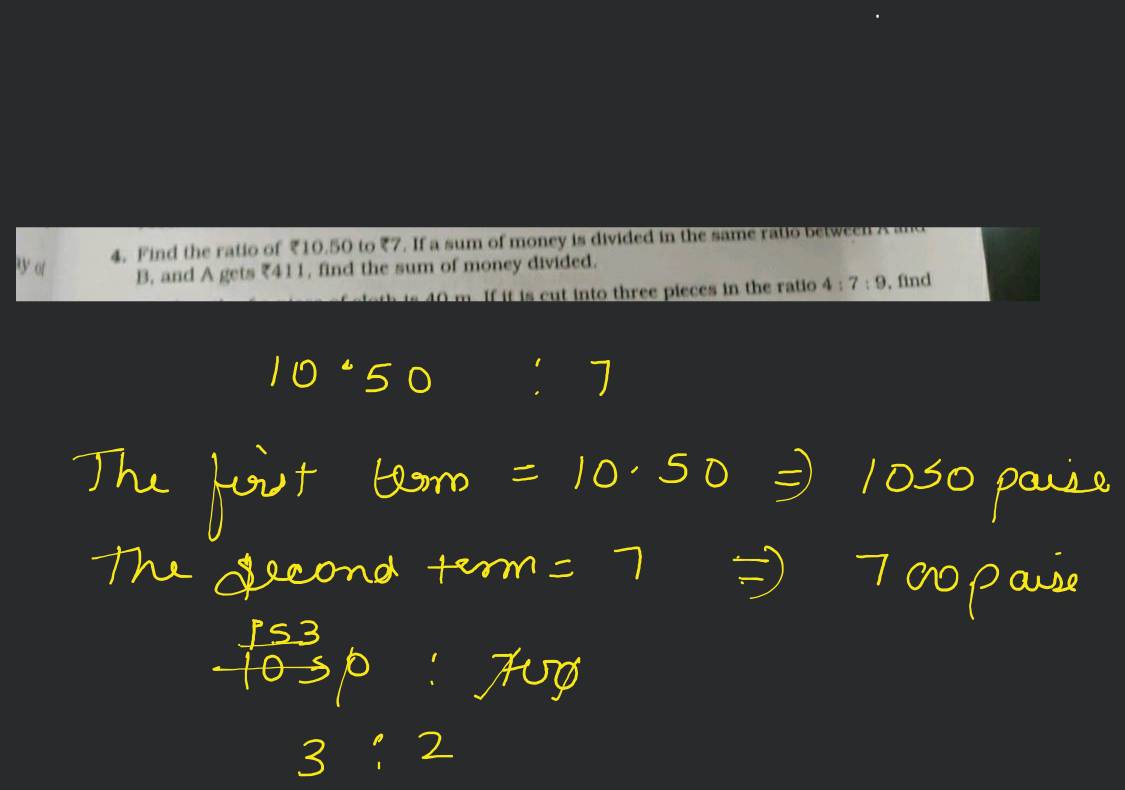 ay of
4. Find the ratio of ₹10.50 to ₹7. If a sum of money is divided in the same ratio between A and
B, and A gets ₹411, find the sum of money divided.
of cloth is 40 m. If it is cut into three pieces in the ratio 4 : 7 : 9, find
10.50 : 7
The first term = 10.50 ⇒ 1050 paise
The second term = 7 ⇒ 700 paise
153
1050 : 700
3 : 2